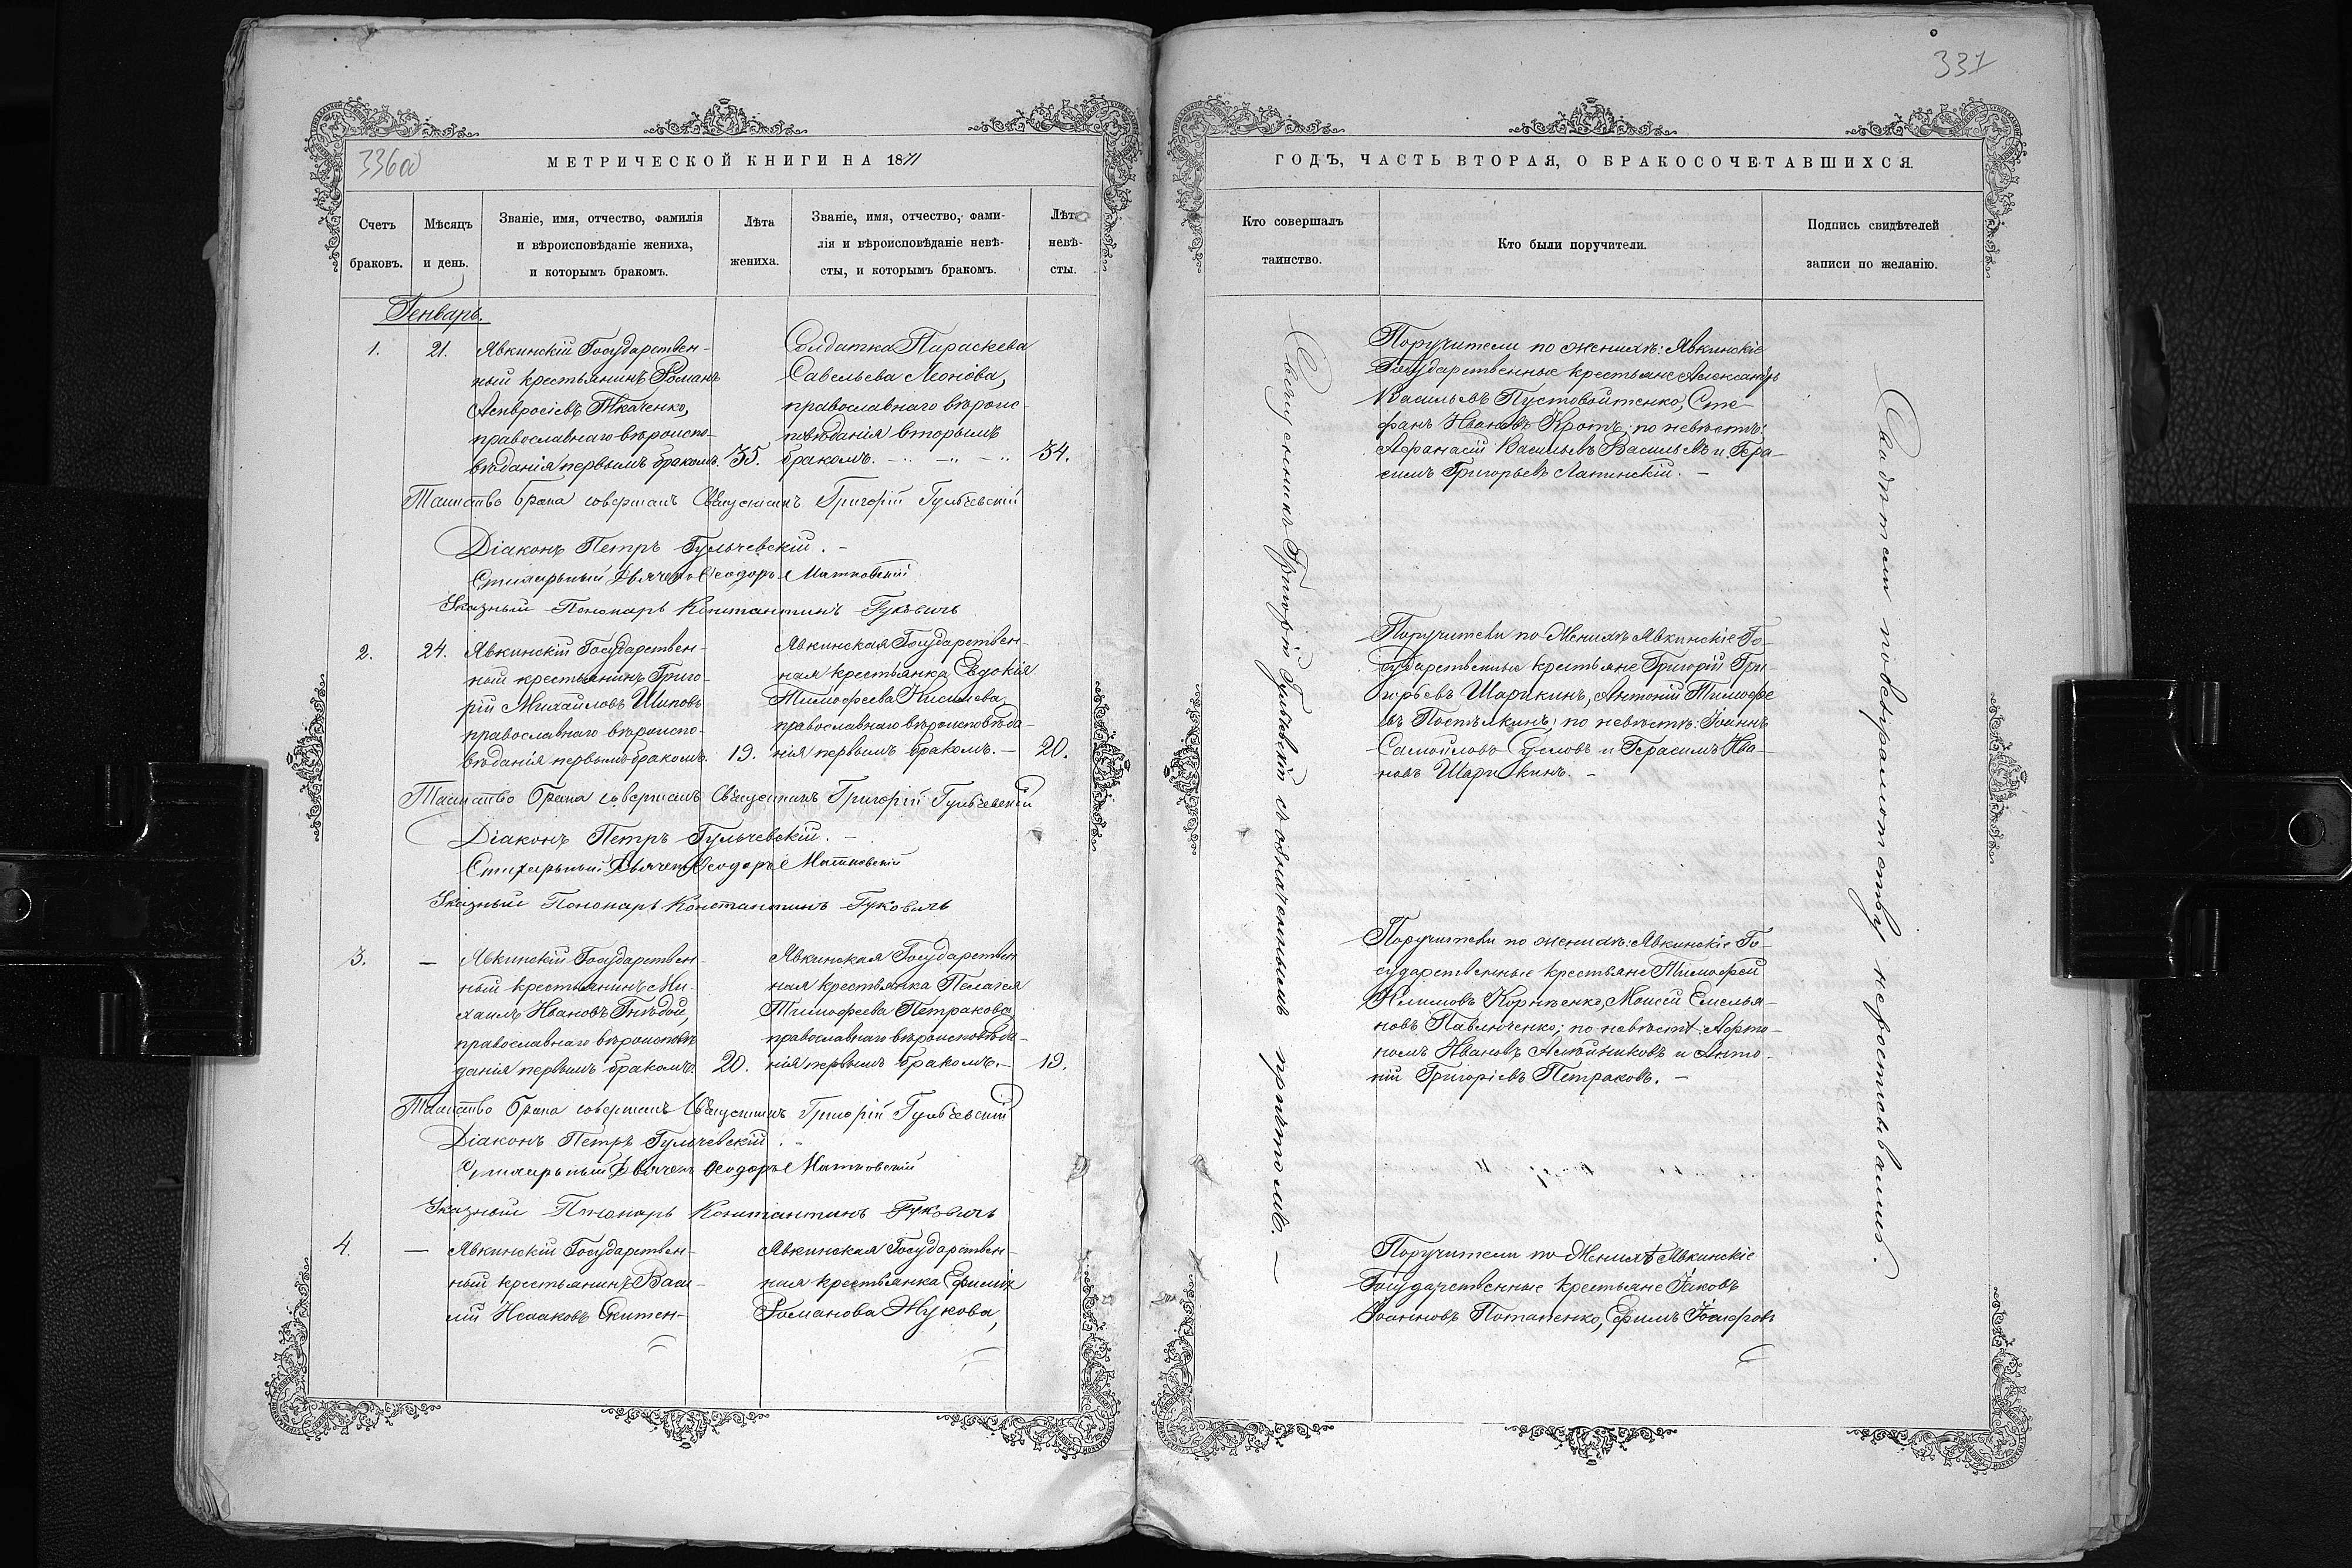 337
336об
МЕТРИЧЕСКОЙ КНИГИ НА 1871
Счетъ браковъ.
Мѣсяцъ и день.
Званіе, имя, отчество, фамилія
и вѣроисповѣданіе жениха,
и которымъ бракомъ.
Лѣта жениха.
Званіе, имя, отчество, фами-
лія и вѣроисповѣданіе невѣ-
сты, и которымъ бракомъ.
Лѣта невѣ-
сты.
Генварь.
1. 21.
Явкинскій Государствен-
ный крестьянинъ Романъ
Амвросіевъ Ткаченко,
православнаго вѣроиспо-
вѣданія первымъ бракомъ. 35.
Солдатка Параскева
Савельева Леонова,
православнаго вѣроис-
повѣданія вторымъ
бракомъ. 34.
Таинство брака совершалъ Свящусникъ Григорій Гульчевскій
Діаконъ Петръ Гульчевскій.
Стихарьный Дьячекъ Ѳеодоръ Матковскій
Указный Пономарь Константинъ Гуковичъ
2. 24.
Явкинскій Государствен-
ный крестьянинъ Григо-
рій Михайловъ Шиповъ
православнаго вѣроиспо-
вѣданія первымъ бракомъ. 19.
Явкинская Государствен-
ная крестьянка Евдокія
Тимофеева Киселева,
православнаго вѣроисповѣда-
нія первымъ бракомъ. — 20.
Таинство брака совершалъ Григорій Гульчевскій
Діаконъ Петръ Гульчевскій. —
Стихарьный Дьячекъ Ѳеодоръ Матковскій
Указный Пономарь Константинъ Гуковичъ
3. —
Явкинскій Государствен-
ный крестьянинъ Ми-
хаилъ Ивановъ Гнѣдой,
православнаго вѣроисповѣ-
данія первымъ бракомъ. 20.
Явкинская Государствен
ная крестьянка Пелагея
Тимофеева Петракова
православнаго вѣроисповѣда-
нія первымъ бракомъ. — 19.
Таинство брака совершалъ Григорій Гульчевскій
Діаконъ Петръ Гульчевскій. —
Стихарьный Дьячекъ Ѳеодоръ Матковскій
Указный Пономарь Константинъ Гуковичъ
4. —
Явкинскій Государствен-
ный крестьянинъ Васи-
лій Исааковъ
Явкинская Государствен-
ная крестьянка Ефимія
Романова Жукова,
ГОДЪ, ЧАСТЬ ВТОРАЯ, О БРАКОСОЧЕТАВШИХСЯ.
Кто совершалъ
таинство.
Кто были поручители.
Подпись свидѣтелей
записи по желанію.
Григорій Гульчевскій съ означеннымъ причтомъ. —
Поручители по женихѣ: Явкинскіе
Государственные крестьяне Александръ
Васильевъ Пустовойтенко, Сте-
фанъ Ивановъ Кротъ; по невѣстѣ:
Афанасій Васильевъ Васильевъ и Гера-
симъ Григорьевъ Лапинскій. —
Поручители по Женихѣ Явкинскіе Го-
сударственные крестьяне Григорій Гри-
горьевъ Шарикинъ, Антоній Тимофе
евъ ; по невѣстѣ: Іоаннъ
Самойловъ Сусловъ и Герасимъ Ива-
новъ Шарикинъ. —
Поручители по женихѣ: Явкинскіе Го-
сударственные крестьяне Тимофей
Климовъ Корнѣенко, Моисей Емелья-
новъ Павлюченко; по невѣстѣ: Арто-
номъ Ивановъ и Анто-
ній Григоріевъ Петраковъ. —
Поручители по Женихѣ Явкинскіе
Государственные крестьяне Іаковъ
Іоанновъ Потапенко, Ефимъ Іосифовъ
Свидѣтели по безграмотству нероспис­ывались.